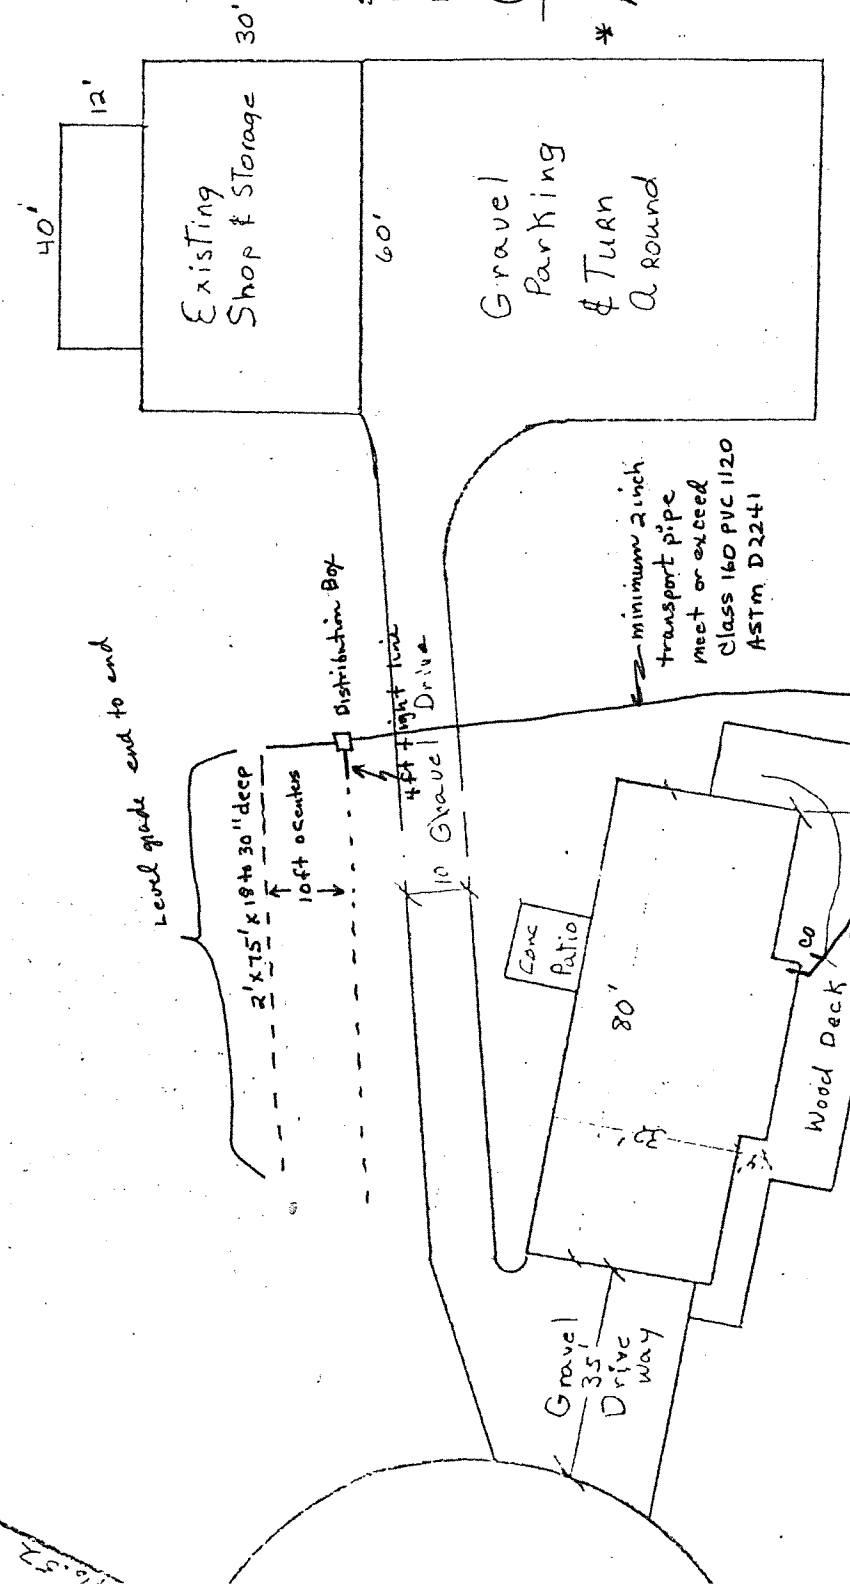 40'
12'
30'
Existing
Shop & Storage
60'
Gravel
Parking
& Turn
Around
*
Level grade end to end
2' x 75' x 18 to 30" deep
10ft centers
Distribution Box
4ft tight line
10 Gravel Drive
minimum 2 inch
transport pipe
meet or exceed
Class 160 PVC 1120
ASTM D2241
Conc
Patio
80'
CO
Wood Deck
Gravel
35'
Drive
way